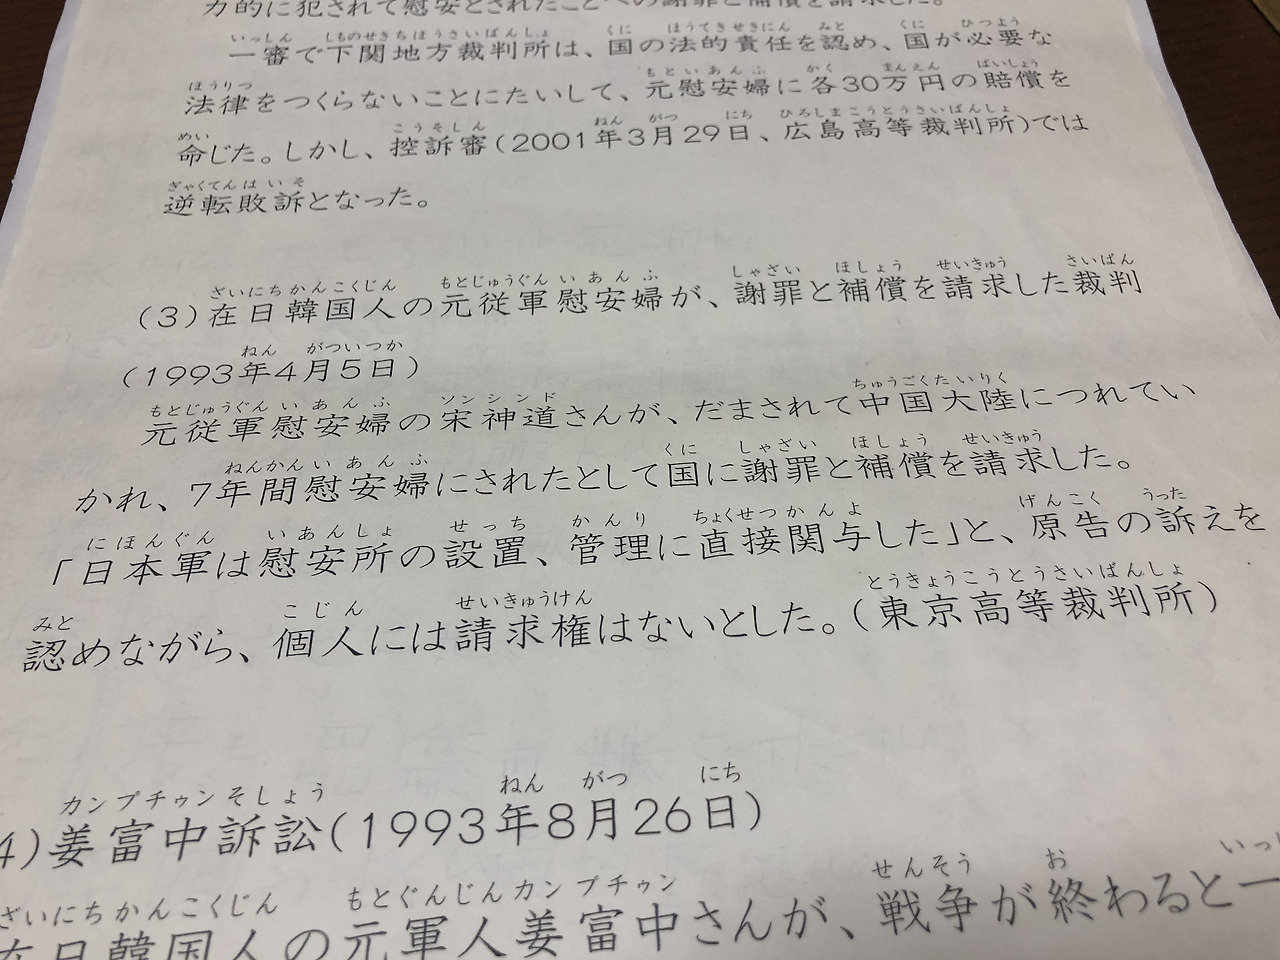 力的に犯されて慰安とされたことへの謝罪と補償を請求した。
いっしん しものせきちほうさいばんしょ くに ほうてきせきにん みと くに ひつよう
一審で下関地方裁判所は、国の法的責任を認め、国が必要な
ほうりつ もといあんふ かく まんえん ばいしょう
法律をつくらないことにたいして、元慰安婦に各30万円の賠償を
めい こうそしん ねん がつ にち ひろしまこうとうさいばんしょ
命じた。しかし、控訴審(2001年3月29日、広島高等裁判所)では
ぎゃくてんはいそ
逆転敗訴となった。
ざいにちかんこくじん もとじゅうぐんいあんふ しゃざい ほしょう せいきゅう さいばん
(3)在日韓国人の元従軍慰安婦が、謝罪と補償を請求した裁判
ねん がついつか
(1993年4月5日)
もとじゅうぐんいあんふ ソンシンド ちゅうごくたいりく
元従軍慰安婦の宋神道さんが、だまされて中国大陸につれてい
ねんかんいあんふ くに しゃざい ほしょう せいきゅう
かれ、7年間慰安婦にされたとして国に謝罪と補償を請求した。
にほんぐん いあんしょ せっち かんり ちょくせつかんよ げんこく うった
「日本軍は慰安所の設置、管理に直接関与した」と、原告の訴えを
みと こじん せいきゅうけん とうきょうこうとうさいばんしょ
認めながら、個人には請求権はないとした。(東京高等裁判所)
カンプチゥンそしょう ねん がつ にち
4)姜富中訴訟(1993年8月26日)
ざいにちかんこくじん もとぐんじんカンプチゥン せんそう お いっ
在日韓国人の元軍人姜富中さんが、戦争が終わると一